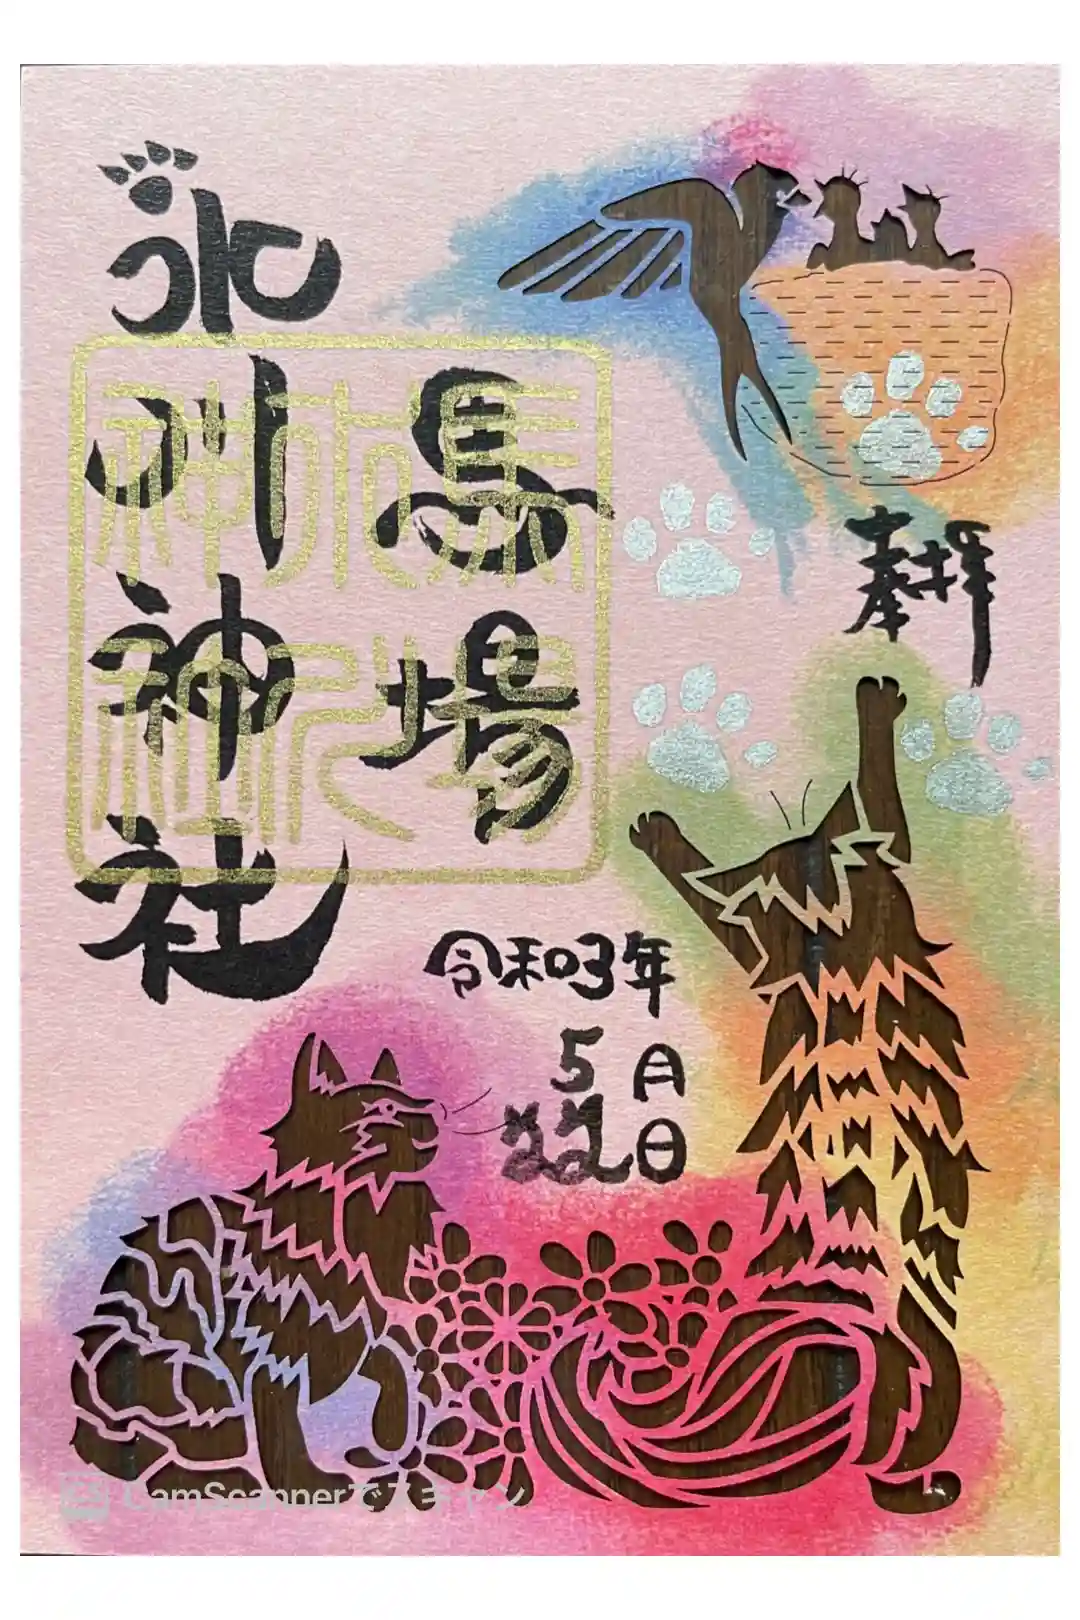 奉拝
馬場
氷川神社
馬場
氷川神社
令和03年
5月
22日
CamScannerでスキャン